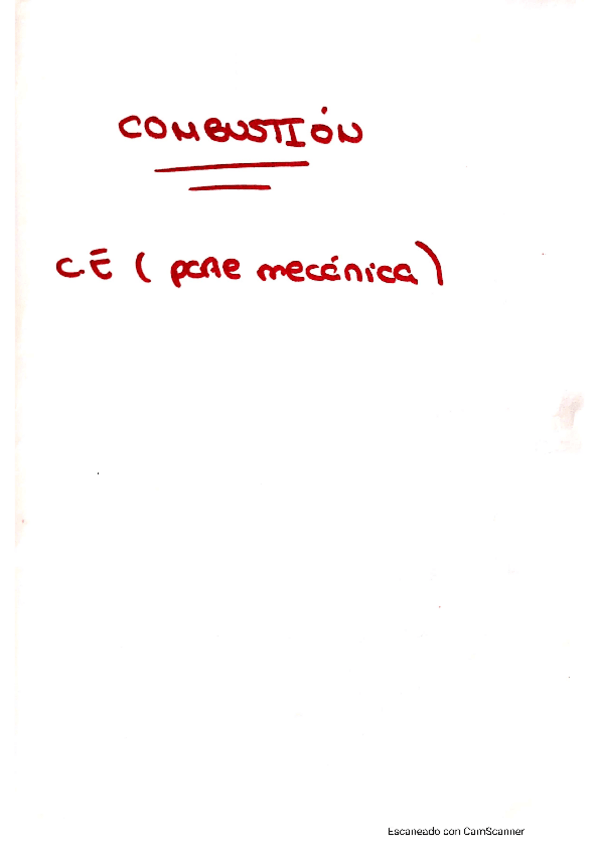 COMBUSTIÓN
C.E (parte mecánica)
Escaneado con CamScanner